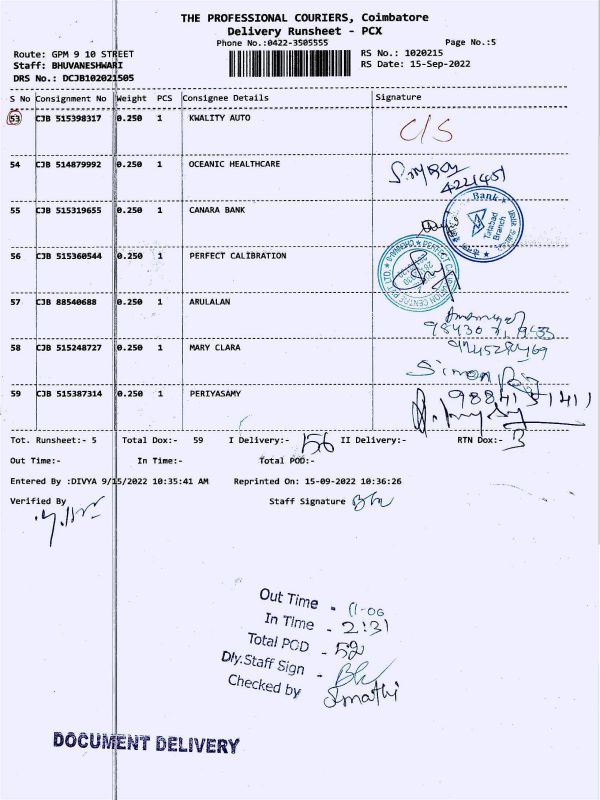 THE PROFESSIONAL COURIERS, Coimbatore
Delivery Runsheet - PCX
Phone No.:0422-3505555 Page No.:5
Route: GPM 9 10 STREET RS No.: 1020215
Staff: BHUVANESHWARI RS Date: 15-Sep-2022
DRS No.: DCJB102021505
S No Consignment No Weight PCS Consignee Details Signature
53 CJB 515398317 0.250 1 KWALITY AUTO C/S
54 CJB 514879992 0.250 1 OCEANIC HEALTHCARE
4221451
55 CJB 515319655 0.250 1 CANARA BANK
Bank
Tatabad
Branch
56 CJB 515360544 0.250 1 PERFECT CALIBRATION
57 CJB 88540688 0.250 1 ARULALAN
58 CJB 515248727 0.250 1 MARY CLARA
Simon
59 CJB 515387314 0.250 1 PERIYASAMY
Tot. Runsheet:- 5 Total Dox:- 59 I Delivery:- 56 II Delivery:- RTN Dox:- 3
Out Time:- In Time:- Total POD:-
Entered By :DIVYA 9/15/2022 10:35:41 AM Reprinted On: 15-09-2022 10:36:26
Verified By Staff Signature
Out Time - 11-00
In Time - 2:31
Total POD - 52
Dly.Staff Sign -
Checked by
DOCUMENT DELIVERY